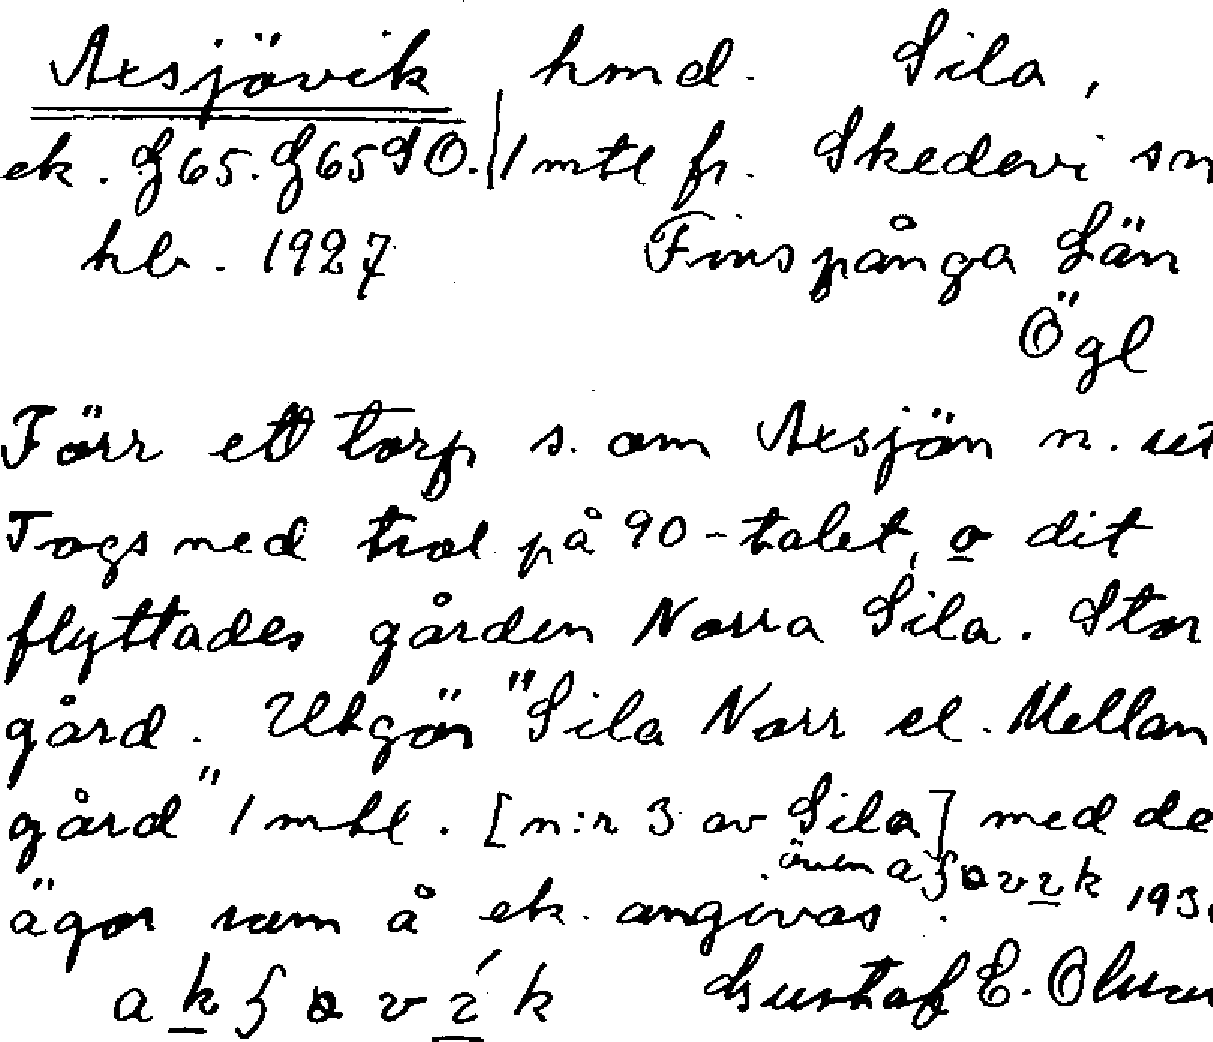 Axsjövik, hmd. Sila,
ek. J65. J65SO. 1 mtl fr. Skedevi sn
hb. 1927 Finspånga Län
Ögl
Förr ett torp s. om Axsjön n. ut
Togs ned trol på 90-talet, o dit
flyttades gården Norra Sila. Stor
gård. Utgör "Sila Norr el. Mellan
gård" 1 mtl. [n:r 3 av Sila] med de
även
ägor som å ek. angivas. 193
Gustaf E.